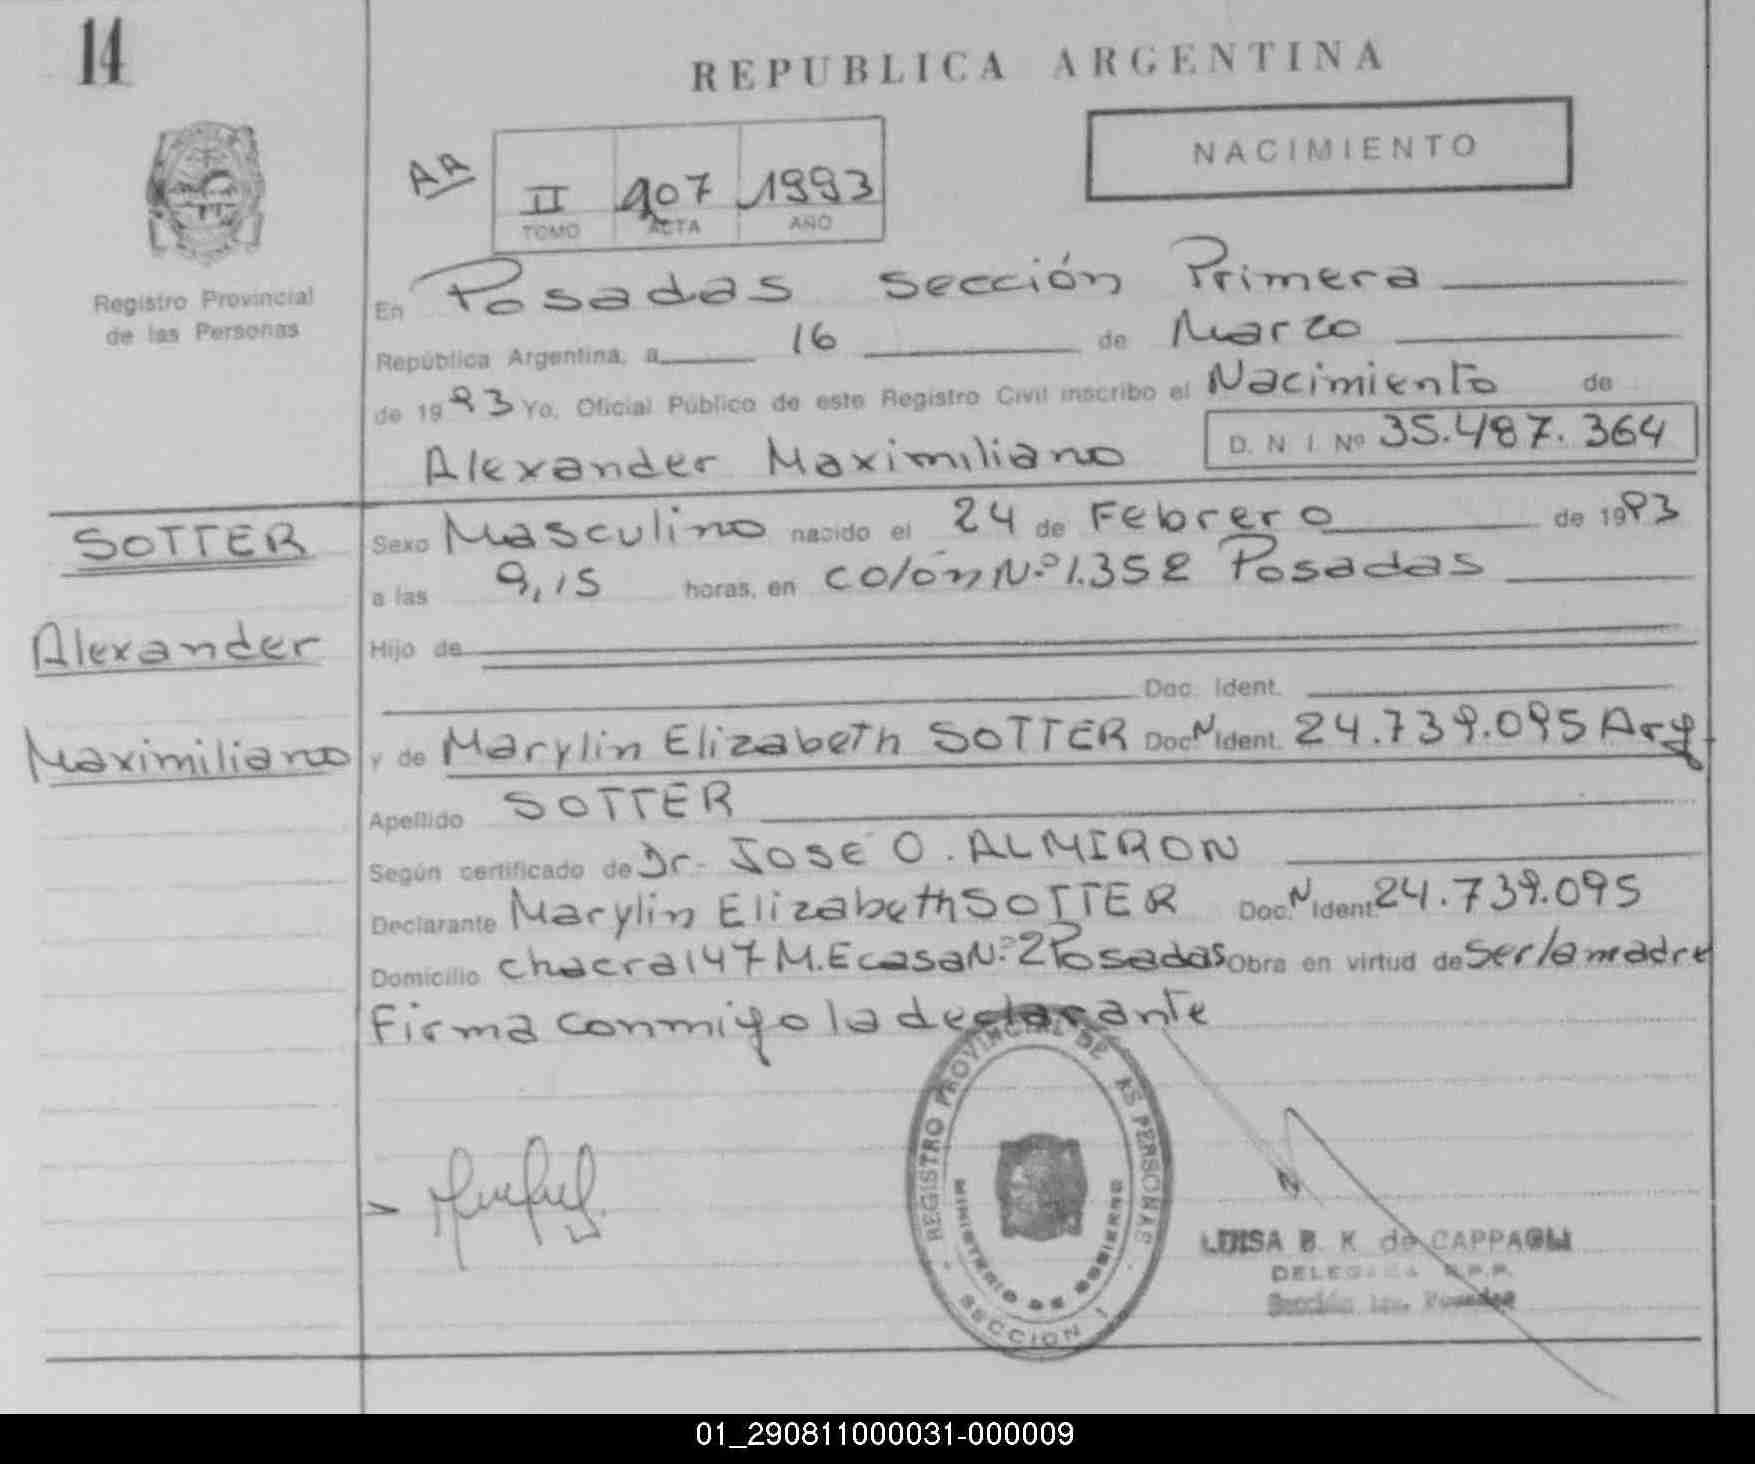 14
REPUBLICA ARGENTINA
NACIMIENTO
AA
II 907 1993
TOMO ACTA AÑO
Registro Provincial
de las Personas
En Posadas Sección Primera
República Argentina, a 16 de Marzo
de 1993 Yo, Oficial Público de este Registro Civil inscribo el Nacimiento de
Alexander Maximiliano D. N. I. Nº 35.487.364
SOTTER
Alexander
Maximiliano
Sexo Masculino nacido el 24 de Febrero de 1993
a las 9,15 horas, en colón N.º 1.352 Posadas
Hijo de
Doc. Ident.
y de Marylin Elizabeth SOTTER Doc. N Ident. 24.739.095 Arg.
Apellido SOTTER
Según certificado de Dr. JOSE O. ALMIRON
Declarante Marylin Elizabeth SOTTER Doc. N Ident. 24.739.095
Domicilio chacra 147 M.E casa N.º 2 Posadas Obra en virtud de Ser la madre
Firma conmigo la declarante
REGISTRO PROVINCIAL DE LAS PERSONAS
MINISTERIO DE GOBIERNO
SECCION I
LUISA B. K. de CAPPAGLI
DELEGADA R.P.P.
Sección 1ra. Posadas
01_290811000031-000009